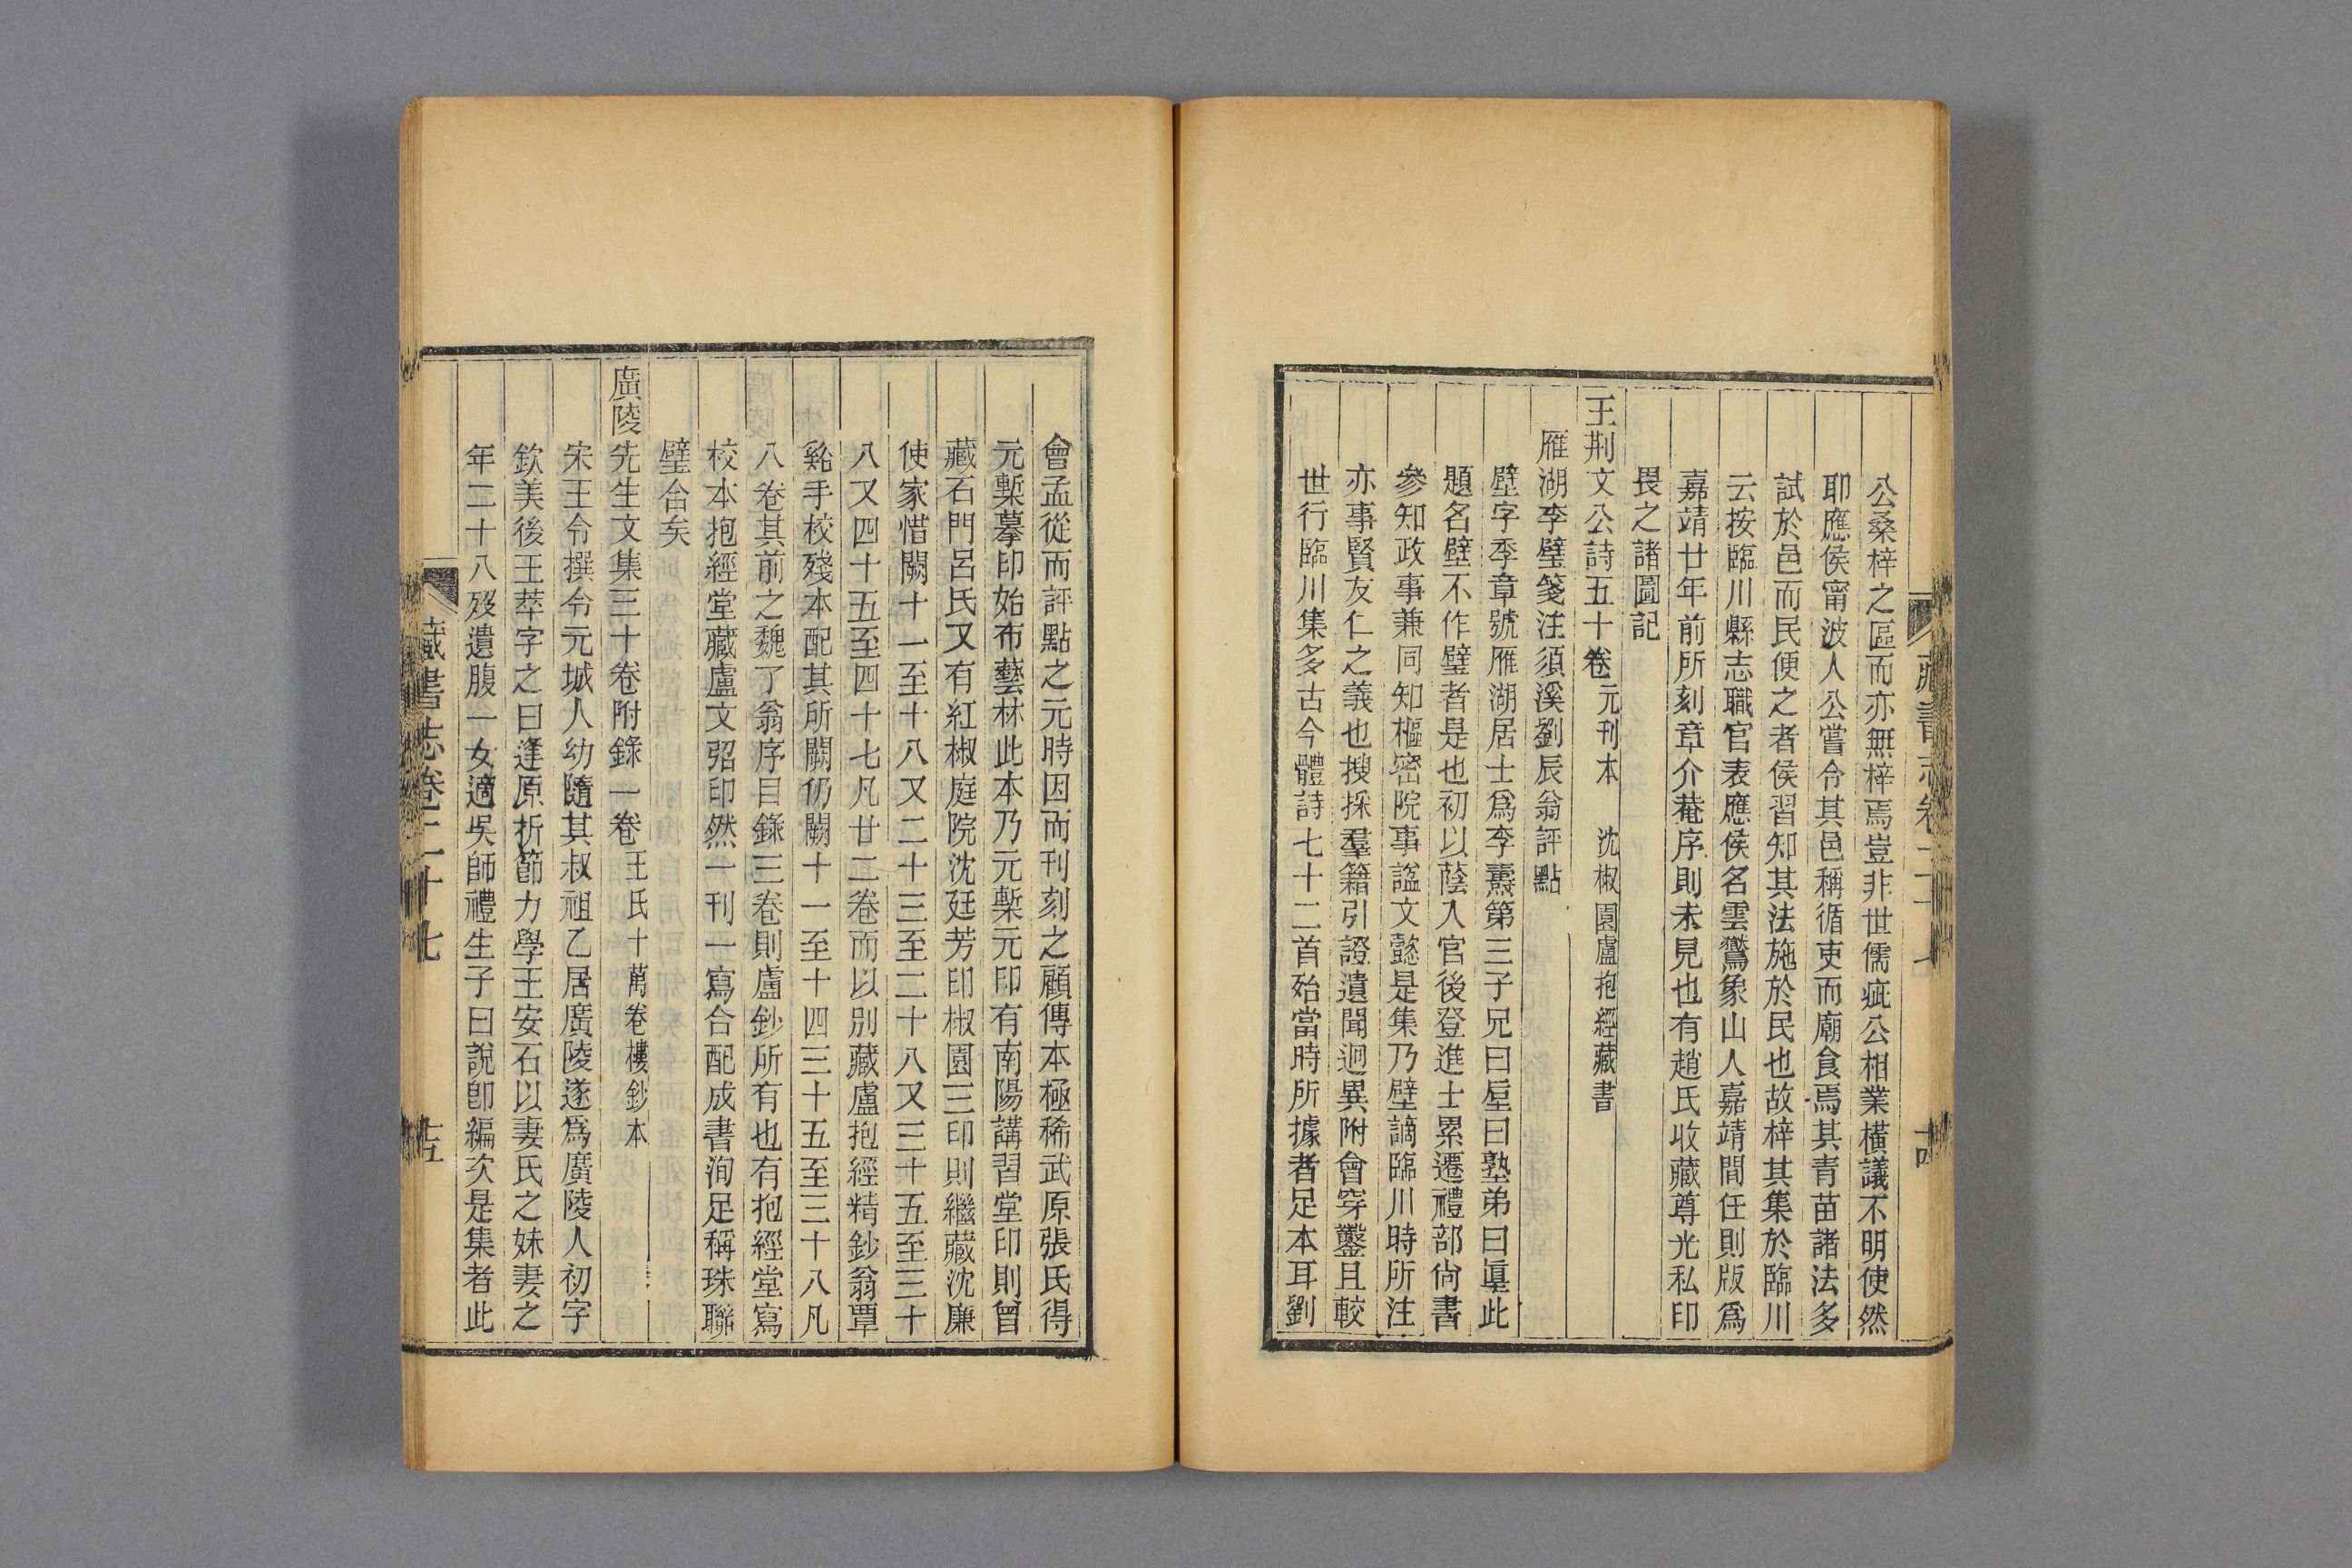 公桑梓之區而亦無梓焉豈非世儒疵公相業橫議不明使然
耶應侯甯波人公嘗令其邑稱循吏而廟食焉其青苗諸法多
試於邑而民便之者侯習知其法施於民也故梓其集於臨川
云按臨川縣志職官表應侯名雲鸑象山人嘉靖間任則版爲
嘉靖廿年前所刻章介菴序則未見也有趙氏收藏尊光私印
畏之諸圖記
王荆文公詩五十卷元刊本 沈椒園盧抱經藏書
雁湖李璧箋注須溪劉辰翁評點
壁字季章號雁湖居士爲李燾第三子兄曰垕曰塾弟曰𡌴此
題名壁不作璧者是也初以蔭入官後登進士累遷禮部尙書
參知政事兼同知樞密院事謚文懿是集乃壁謫臨川時所注
亦事賢友仁之義也搜採羣籍引證遺聞迥異附會穿鑿且較
世行臨川集多古今體詩七十二首殆當時所據者足本耳劉
藏書志卷二十七
十四
會孟從而評點之元時因而刊刻之顧傳本極稀武原張氏得
元槧摹印始布藝林此本乃元槧元印有南陽講習堂印則曾
藏石門呂氏又有紅椒庭院沈廷芳印椒園三印則繼藏沈廉
使家惜闕十一至十八又二十三至二十八又三十五至三十
八又四十五至四十七凡廿二卷而以別藏盧抱經精鈔翁覃
谿手校殘本配其所闕仍闕十一至十四三十五至三十八凡
八卷其前之魏了翁序目錄三卷則盧鈔所有也有抱經堂寫
校本抱經堂藏盧文弨印然一刊一寫合配成書洵足稱珠聯
璧合矣
廣陵先生文集三十卷附錄一卷王氏十萬卷樓鈔本
宋王令撰令元城人幼隨其叔祖乙居廣陵遂爲廣陵人初字
欽美後王萃字之曰逢原折節力學王安石以妻氏之妹妻之
年二十八歿遺腹一女適吳師禮生子曰說卽編次是集者此
藏書志卷二十七
十五